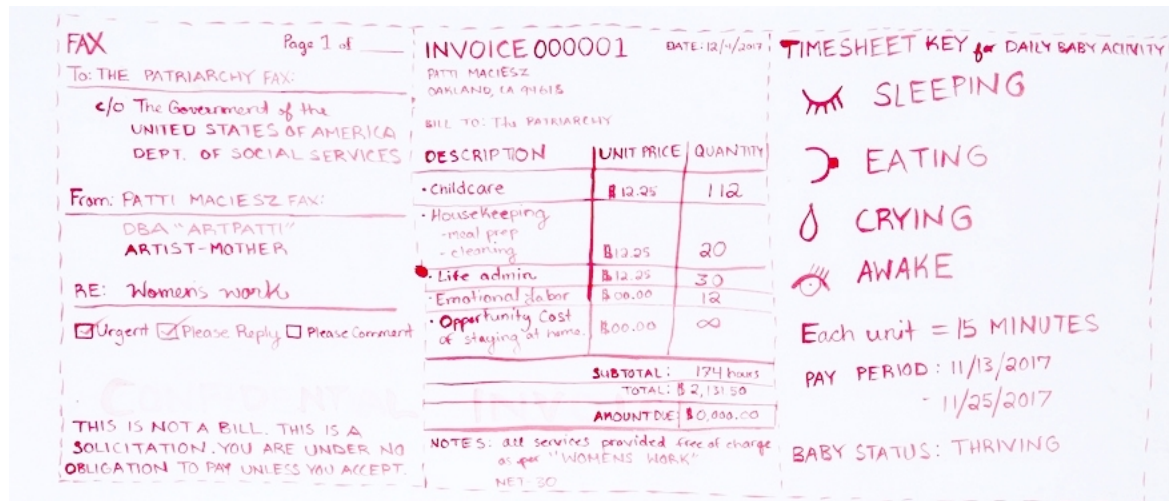 FAX
Page 1 of ____
To: THE PATRIARCHY FAX:
c/o The Government of the
UNITED STATES OF AMERICA
DEPT. OF SOCIAL SERVICES
From: PATTI MACIESZ FAX:
DBA "ARTPATTI"
ARTIST-MOTHER
RE: Women's work
Urgent Please Reply Please Comment
THIS IS NOT A BILL. THIS IS A
SOLICITATION. YOU ARE UNDER NO
OBLIGATION TO PAY UNLESS YOU ACCEPT.
INVOICE 000001
DATE: 12/4/2017
PATTI MACIESZ
OAKLAND, CA 94618
BILL TO: The PATRIARCHY
DESCRIPTION UNIT PRICE QUANTITY
• Childcare $12.25 112
• Housekeeping
-meal prep
-cleaning $12.25 20
• Life admin $12.25 30
• Emotional labor $00.00 12
• Opportunity Cost
of staying at home. $00.00 ∞
SUBTOTAL: 174 hours
TOTAL: $2,131.50
AMOUNT DUE: $0,000.00
NOTES: all services provided free of charge
as per "WOMENS WORK"
NET-30
TIMESHEET KEY for DAILY BABY ACIVITY
SLEEPING
EATING
CRYING
AWAKE
Each unit = 15 MINUTES
PAY PERIOD: 11/13/2017
- 11/25/2017
BABY STATUS: THRIVING